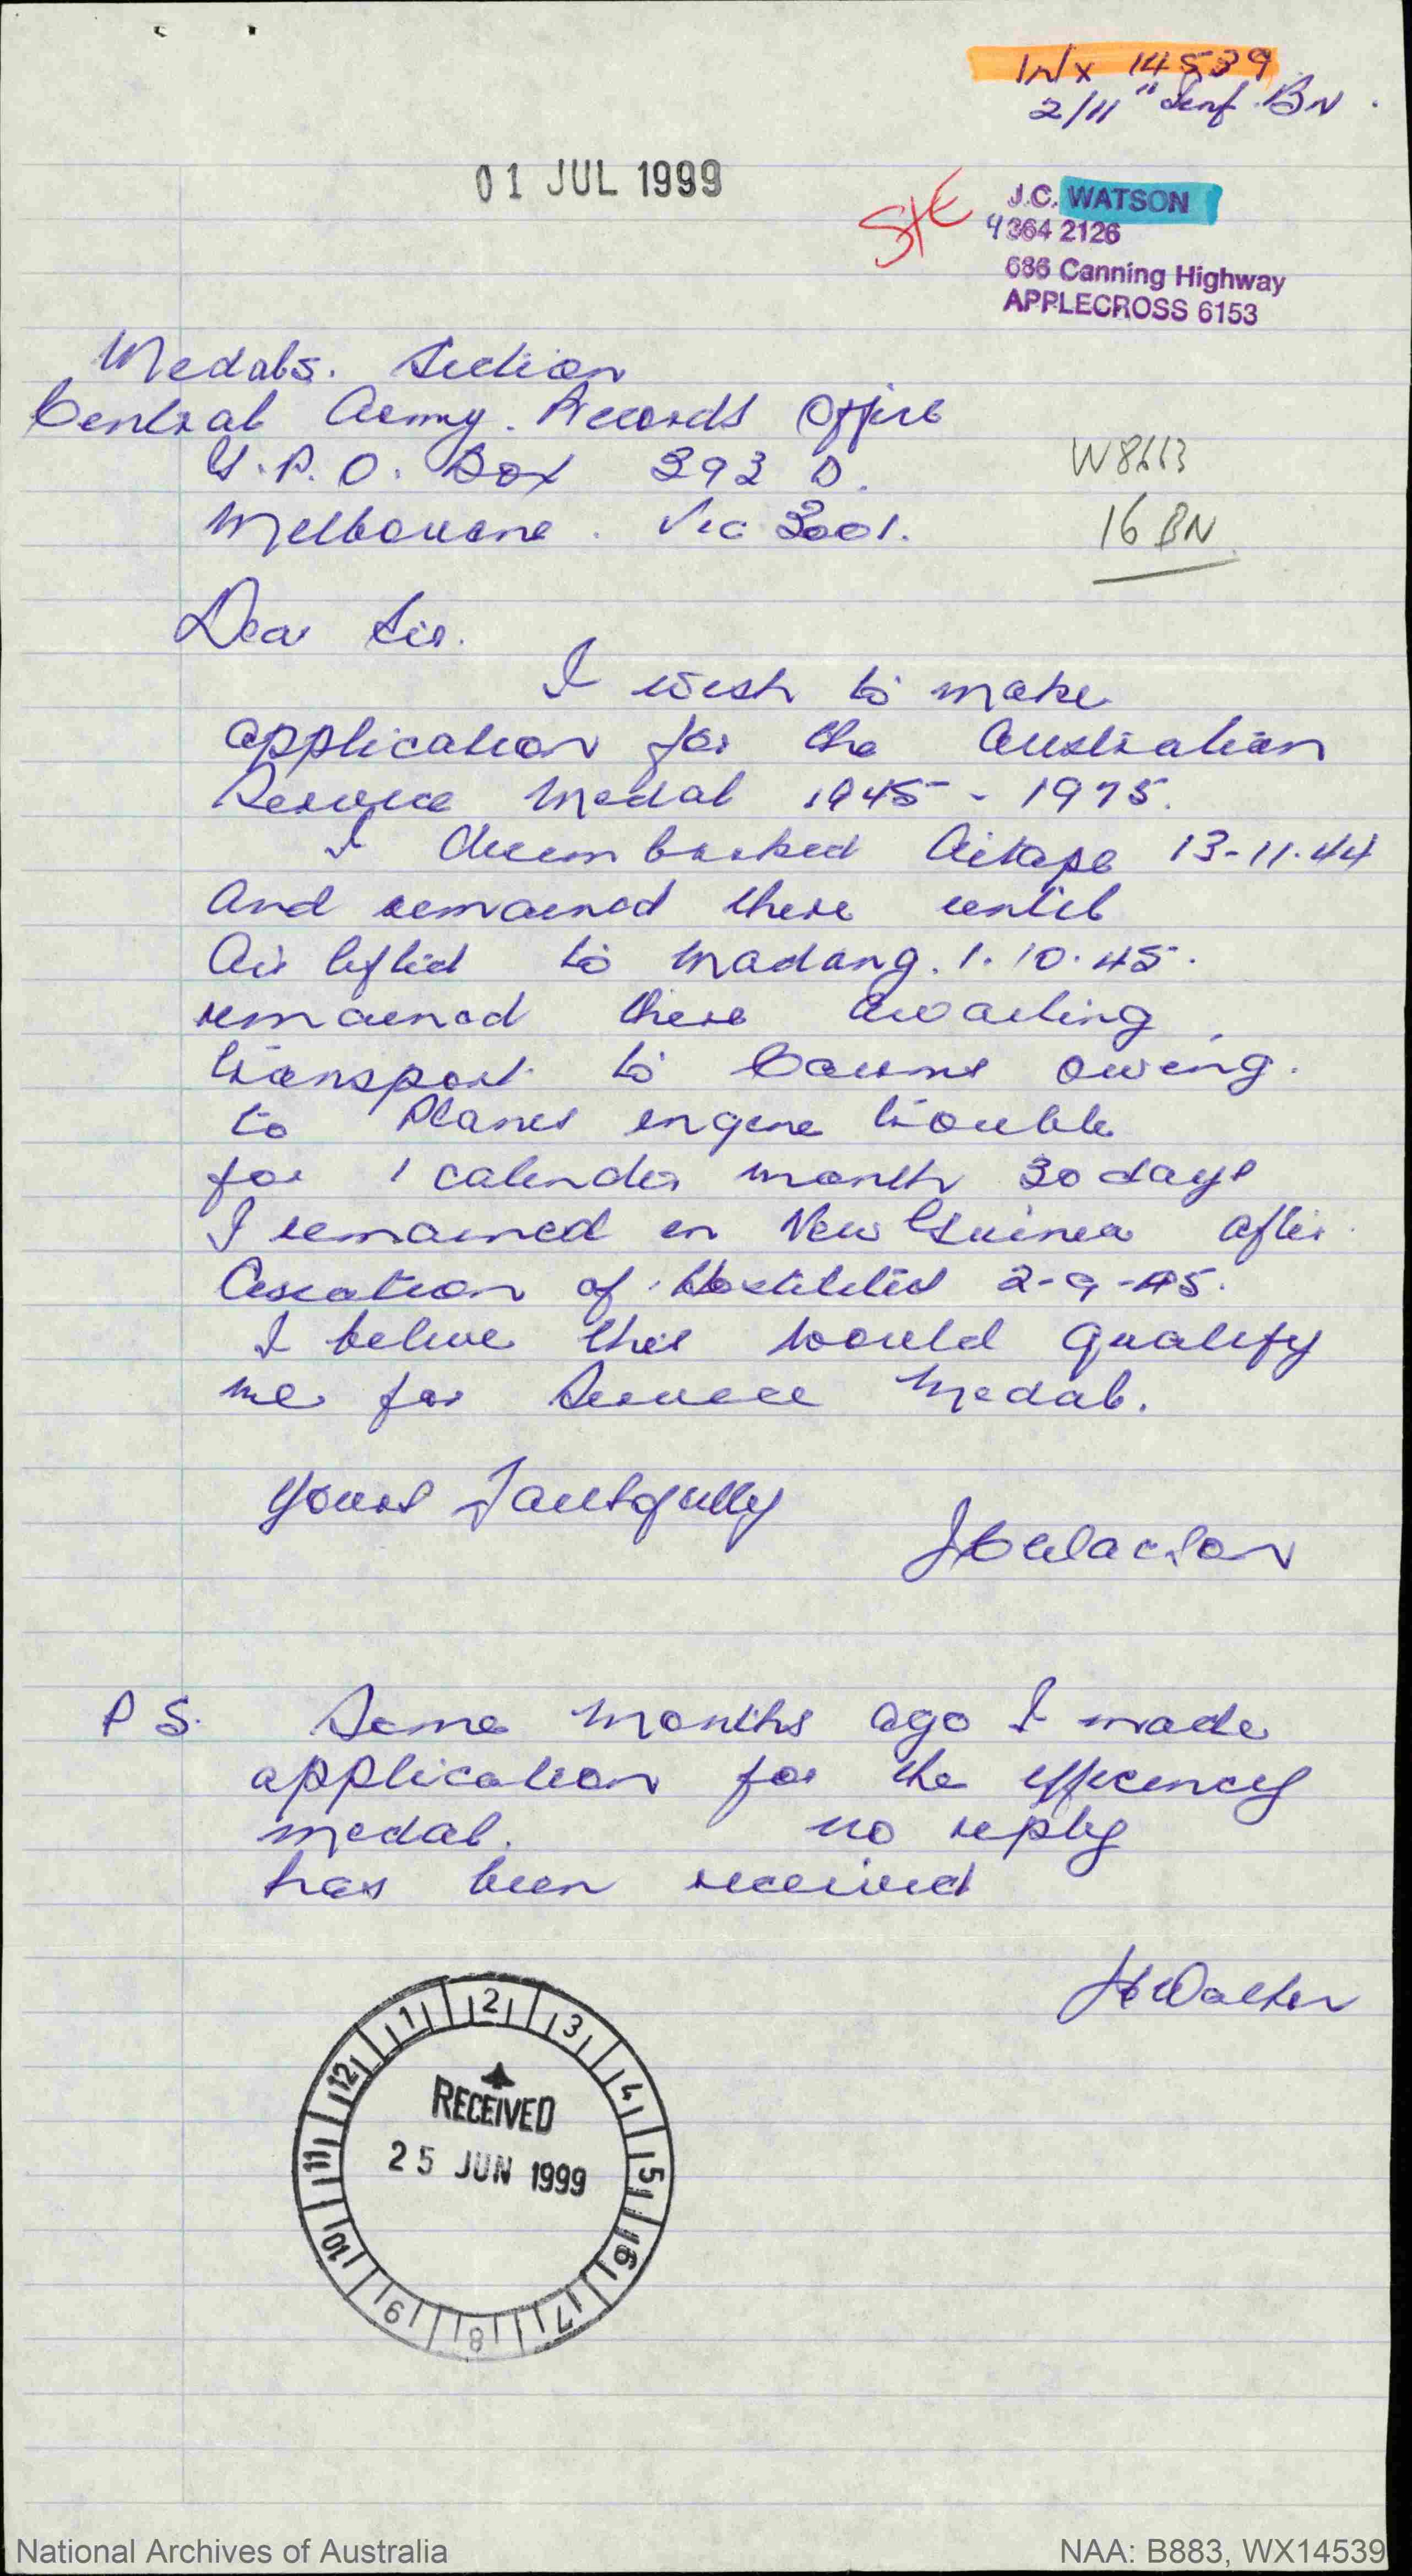 WX 14539
2/11" Inf. BN.
01 JUL 1999
J.C. WATSON
9364 2126
686 Canning Highway
APPLECROSS 6153
Medals. Section
Central Army. Records Office
G.P.O. Box 393 D.
Melbourne. Vic 3001.
W8663
16 BN
Dear Sir.
I wish to make
application for the Australian
Service Medal 1945 - 1975.
I disembarked Aitape 13-11.44
and remained there until
Air lifted to Madang. 1.10.45.
remained there awaiting
transport to Cairns owing.
to Planes engine trouble
for 1 calender month 30 days
I remained in New Guinea after
Cessation of Hostilities 2-9-45.
I belive this would qualify
me for Service Medal.
Yours Faithfully
JCWatson
P S. Some months ago I made
application for the efficency
medal. no reply
has been received
JCWatson
12 1 2 3 4 5 6 7 8 9 10 11
RECEIVED
25 JUN 1999
National Archives of Australia
NAA: B883, WX14539